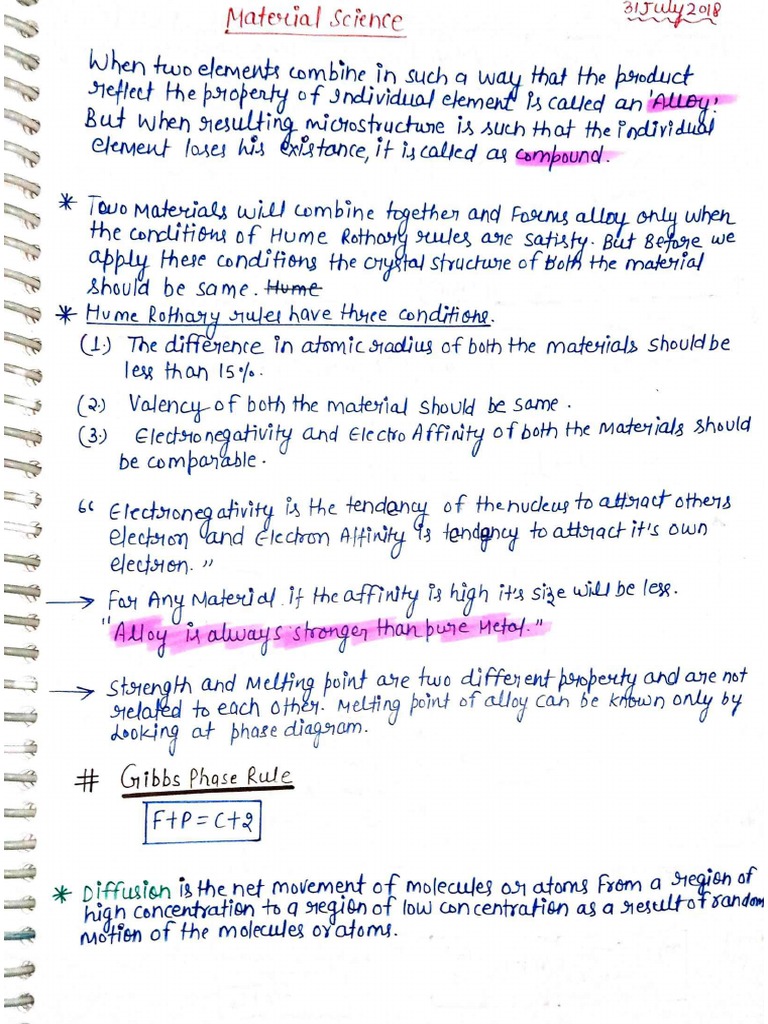 Material Science
31 July 2018
When two elements combine in such a way that the product
reflect the property of individual element is called an 'Alloy'.
But when resulting microstructure is such that the individual
element loses his existance, it is called as compound.
* Two Materials will combine together and Forms alloy only when
the conditions of Hume Rothary rules are satisty. But Before we
apply these conditions the crystal structure of both the material
should be same. Hume
* Hume Rothary rules have three conditions.
(1.) The difference in atomic radius of both the materials should be
less than 15%.
(2.) Valency of both the material should be same.
(3.) Electronegativity and Electro Affinity of both the Materials should
be comparable.
“ Electronegativity is the tendancy of the nucleus to attract others
electron and Electron Affinity is tendancy to attract it's own
electron.”
→ For Any Material if the affinity is high it's size will be less.
"Alloy is always stronger than pure Metal."
→ Strength and Melting point are two different property and are not
related to each other. Melting point of alloy can be known only by
Looking at phase diagram.
# Gibbs Phase Rule
F+P=C+2
* Diffusion is the net movement of molecules or atoms From a region of
high concentration to a region of low concentration as a result of random
Motion of the molecules or atoms.